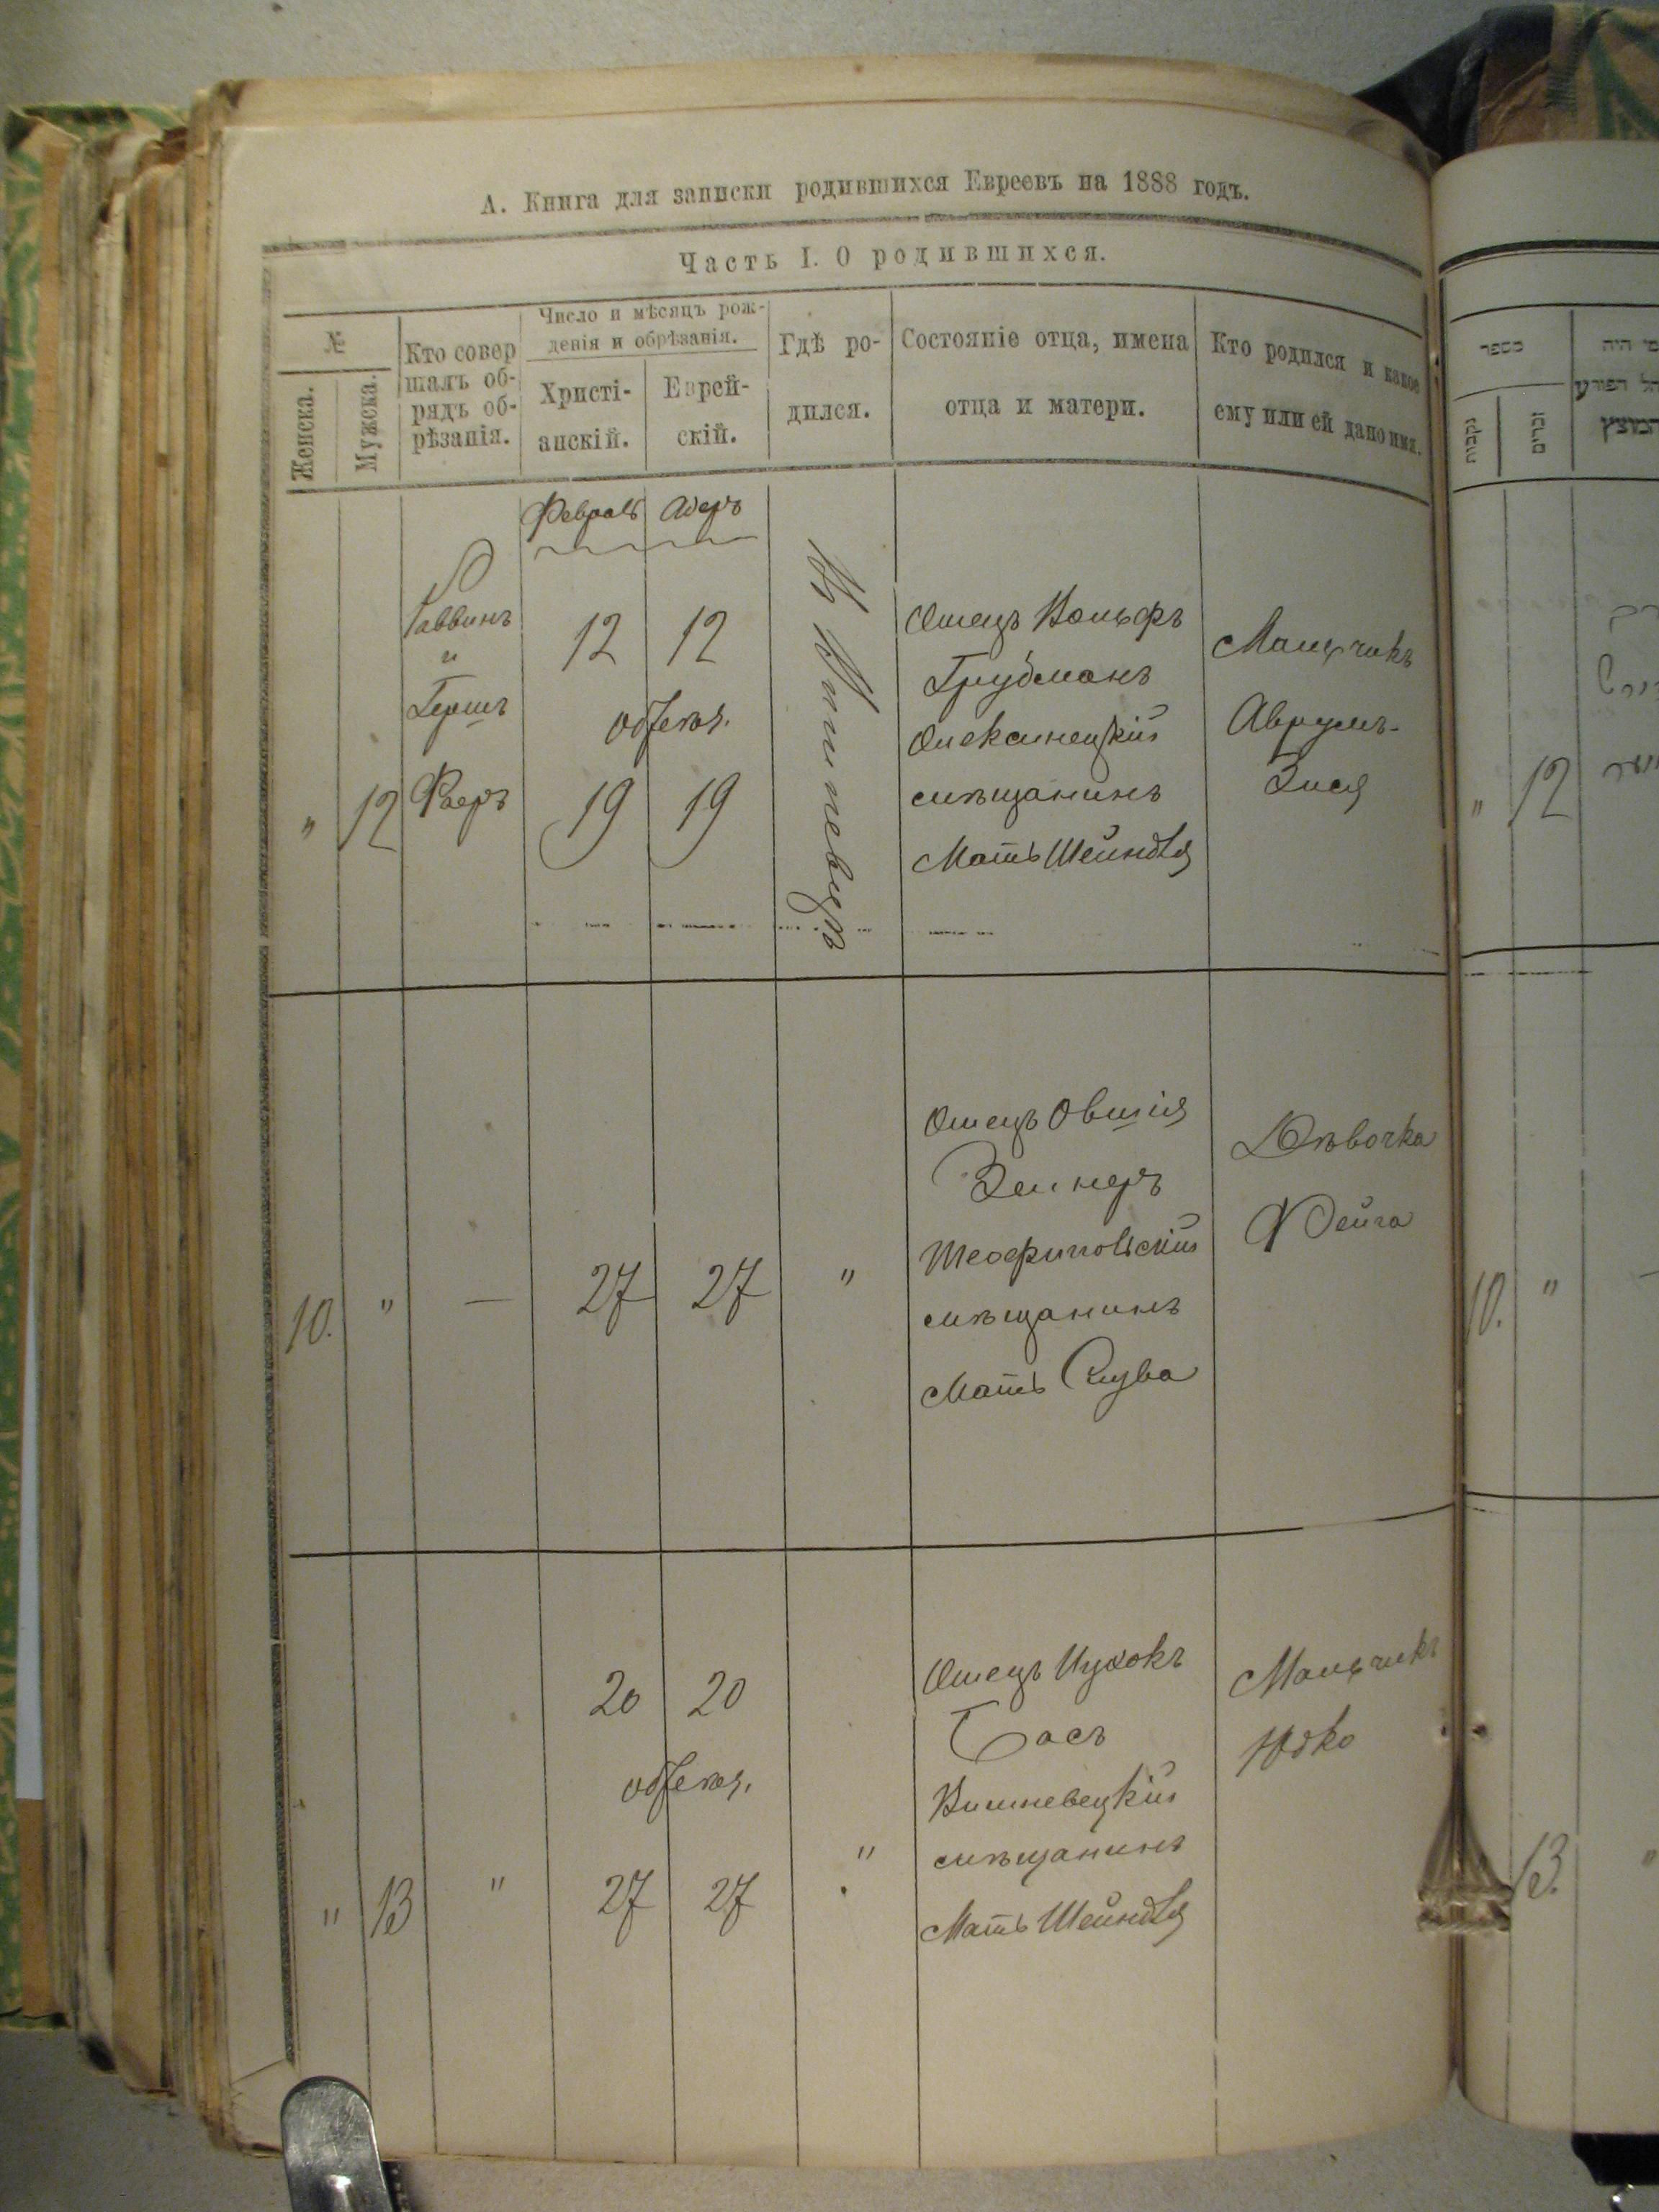 А. Книга для записки родившихся Евреевъ на 1888 годъ.
Часть I. О родившихся.
№
Женска.
Мужска.
Кто совер
шалъ об-
рядъ об-
рѣзанія.
Число и мѣсяцъ рож-
денія и обрѣзанія.
Христі-
анскій.
Еврей-
скій.
Гдѣ ро-
дился.
Состояніе отца, имена
отца и матери.
Кто родился и какое
ему или ей дано имя.
Февраль Адеръ
" 12
Раввинъ
и
Гершъ
Фаеръ
12 12
19 19
В Вишневцѣ
Отецъ Вольфъ
Грубманъ
Олексинецкій
мѣщанинъ
Мать Шейндля
Мальчикъ
Аврумъ-
Зися
10. " — 27 27 "
Отецъ Овшія
Зейнеръ
Теофиповскій
мѣщанинъ
Мать Слува
Дѣвочка
Фейга
" 13 "
20 20
27 27
"
Отецъ Ицхокъ
Басъ
Вишневецкій
мѣщанинъ
Мать Шейндля
Мальчикъ
Юдко
מספר
נקבות
זכרים
מי היה
המוצץ
" 12
10. " —
13. "